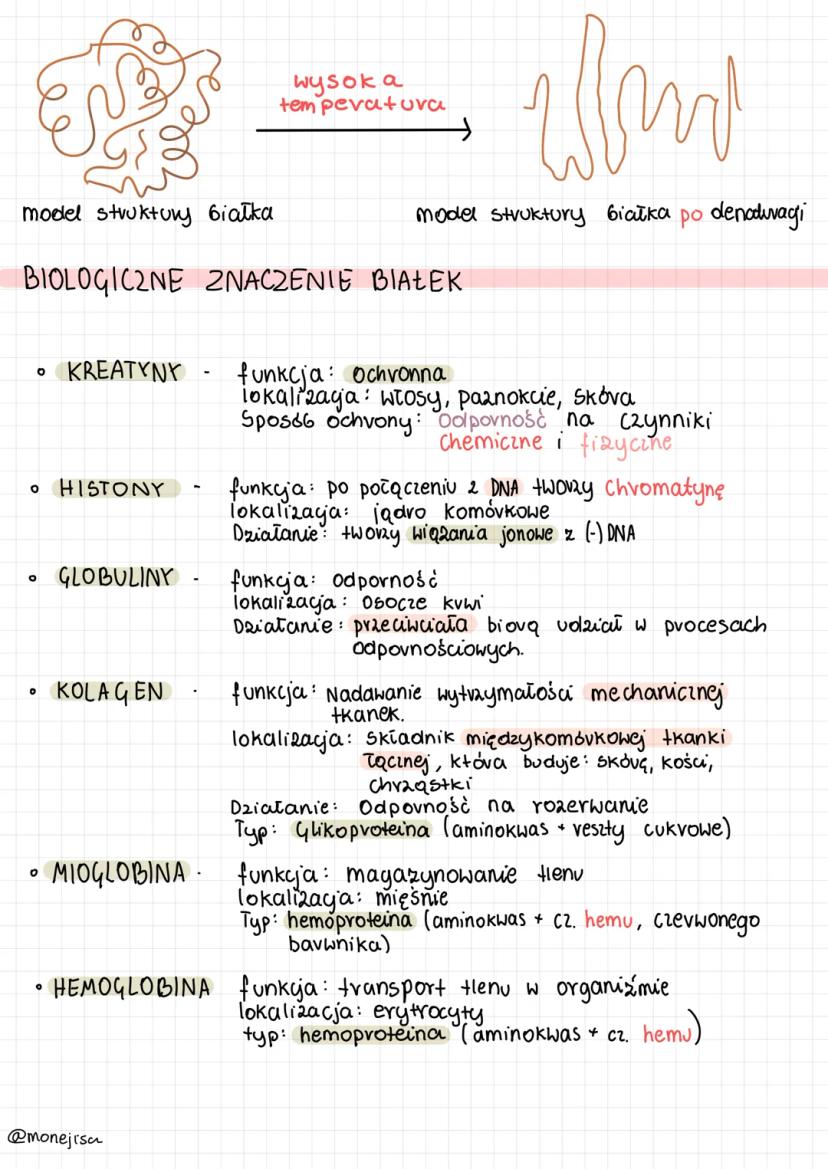 wysoka
temperatura
model struktury białka
model struktury białka po denaturacji
BIOLOGICZNE ZNACZENIE BIAŁEK
• KREATYNY - funkcja: ochronna
lokalizacja: włosy, paznokcie, skóra
Sposób ochrony: odporność na czynniki
chemiczne i fizyczne
• HISTONY - funkcja: po połączeniu z DNA tworzy chromatynę
lokalizacja: jądro komórkowe
Działanie: tworzy wiązania jonowe z (-) DNA
• GLOBULINY - funkcja: odporność
lokalizacja: osocze krwi
Działanie: przeciwciała biorą udział w procesach
odpornościowych.
• KOLAGEN - funkcja: Nadawanie wytrzymałości mechanicznej
tkanek.
lokalizacja: składnik międzykomórkowej tkanki
łącznej, która buduje: skórę, kości,
chrząstki
Działanie: Odporność na rozerwanie
Typ: Glikoproteina (aminokwas + reszty cukrowe)
• MIOGLOBINA - funkcja: magazynowanie tlenu
lokalizacja: mięśnie
Typ: hemoproteina (aminokwas + cz. hemu, czerwonego
barwnika)
• HEMOGLOBINA funkcja: transport tlenu w organiźmie
lokalizacja: erytrocyty
typ: hemoproteina (aminokwas + cz. hemu)
@monejrsa